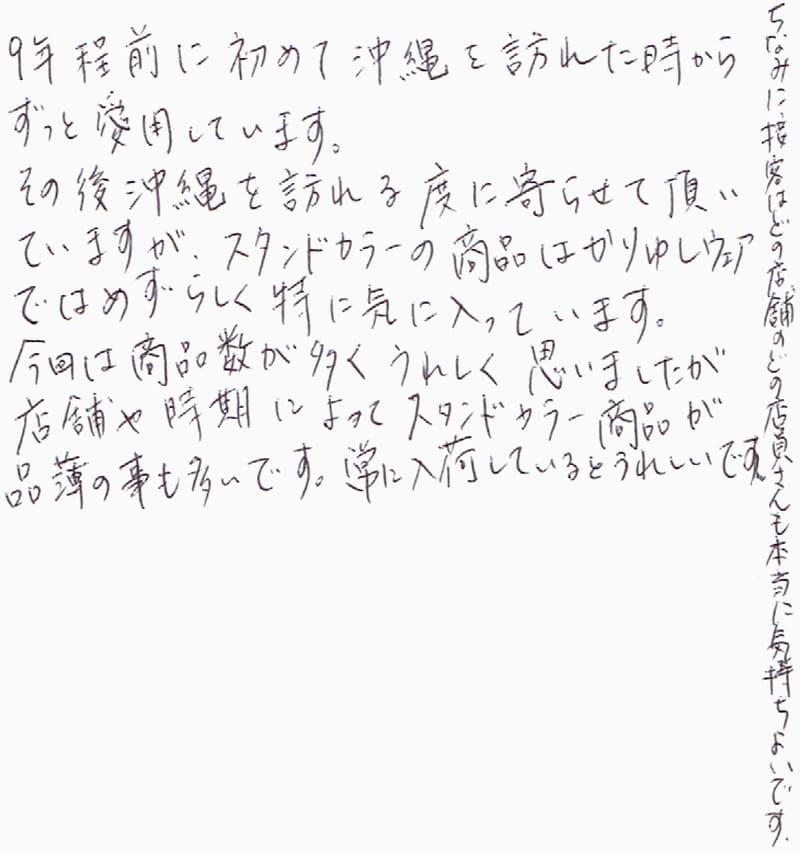 9年程前に初めて沖縄を訪れた時から
ずっと愛用しています。
その後沖縄を訪れる度に寄らせて頂い
ていますが、スタンドカラーの商品はかりゆしウェア
ではめずらしく特に気に入っています。
今回は商品数が多くうれしく思いましたが
店舗や時期によってスタンドカラー商品が
品薄の事も多いです。常に入荷しているとうれしいです。
ちなみに接客はどの店舗のどの店員さんも本当に気持ちよいです。